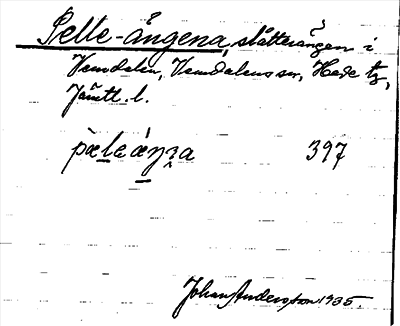 Pelle-ängena, slåtterängen i
Vemdalen, Vemdalens sn, Hede tg,
Jämtl. l.
pæleæŋʒa 397
Johan Andersson 1935.